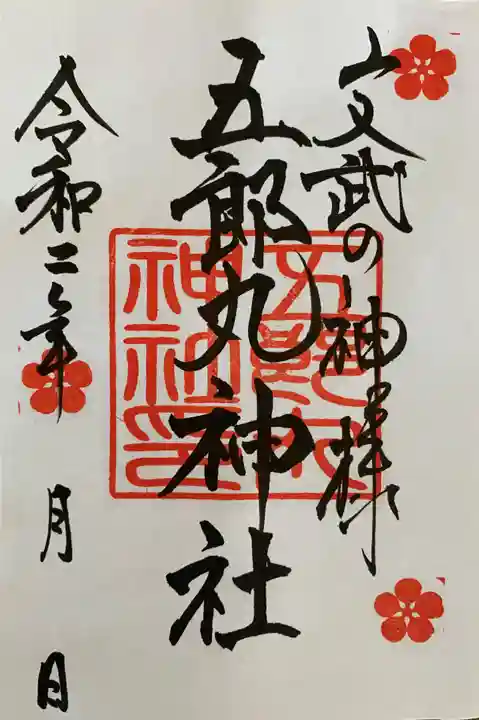 文武の神様
五郎丸神社
五郎丸神社印
令和二年 月 日